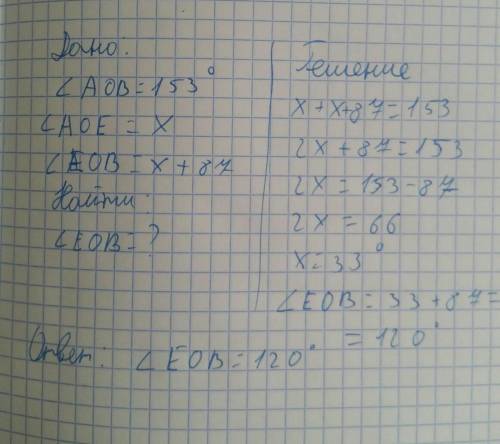 Дано:
∠AOB = 153°
∠AOE = x
∠EOB = x + 87
Найти:
∠EOB = ?
Решение
x + x + 87 = 153
2x + 87 = 153
2x = 153 - 87
2x = 66
x = 33°
∠EOB = 33 + 87 =
= 120°
Ответ: ∠EOB = 120°